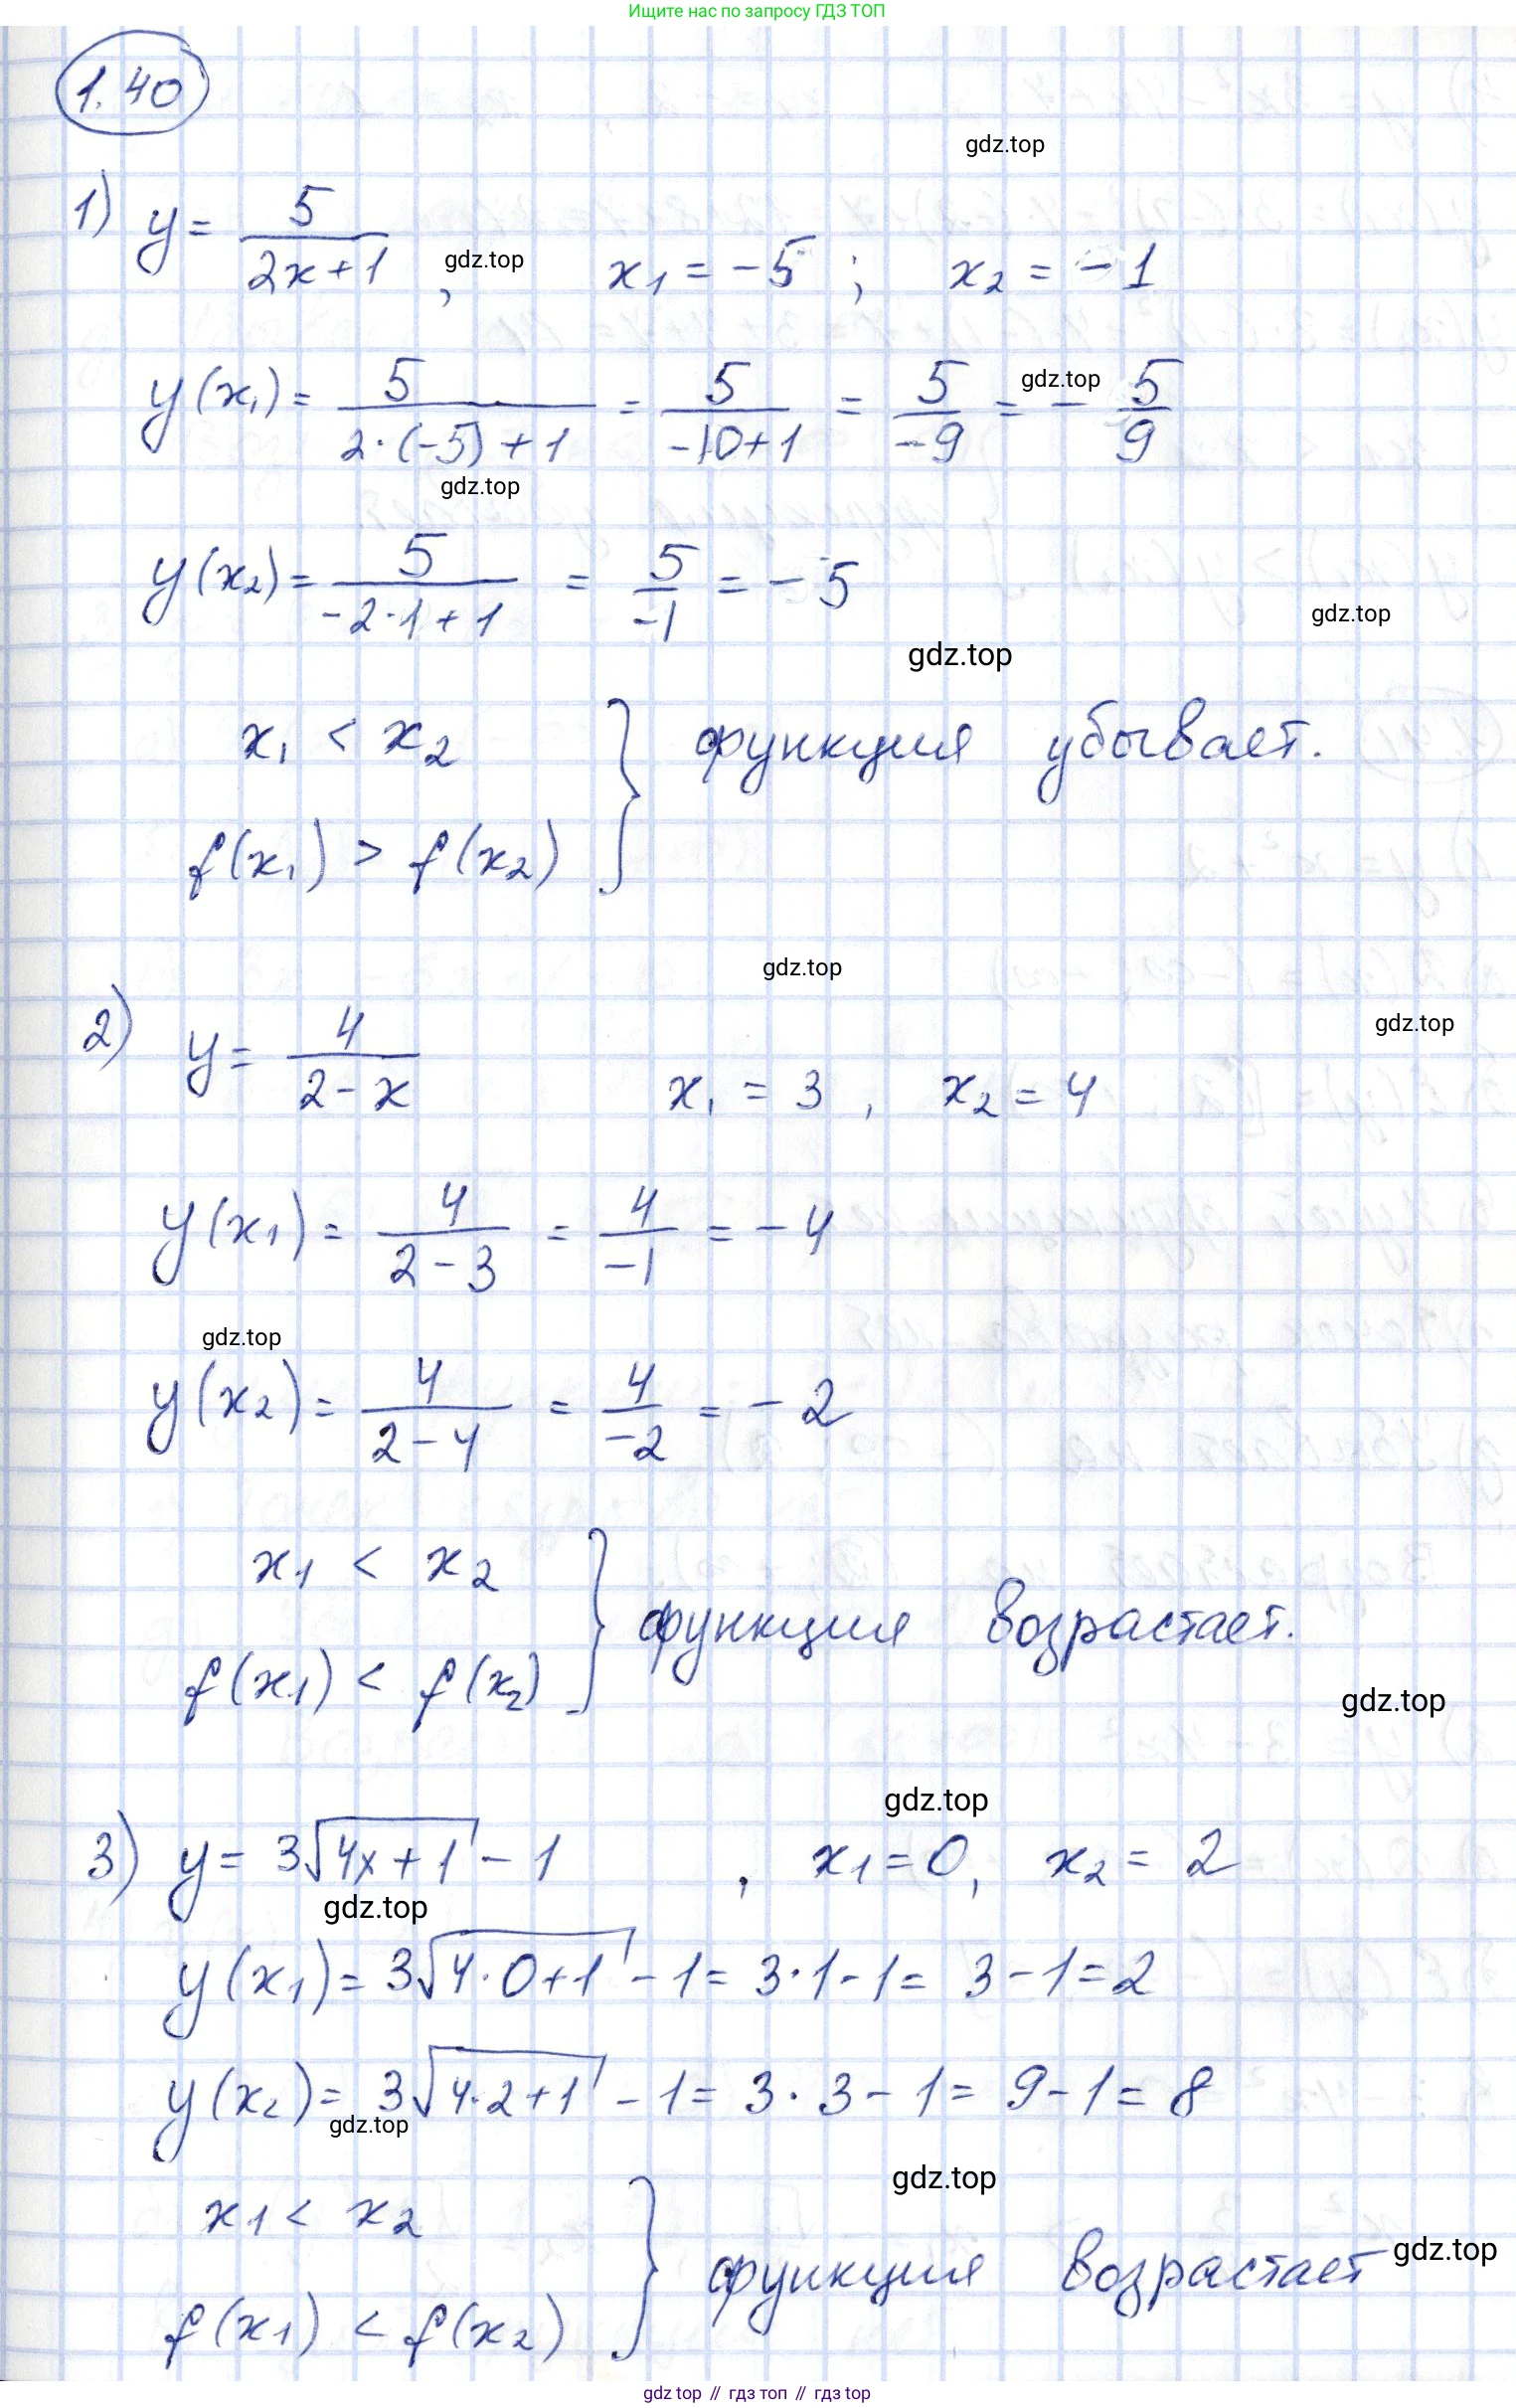 Ищите нас по запросу ГДЗ ТОП
1.40
gdz.top
1) y = 5/(2x+1), gdz.top x₁ = -5; x₂ = -1
y(x₁) = 5/(2·(-5)+1) = 5/(-10+1) = 5/-9 = gdz.top - 5/9
gdz.top
y(x₂) = 5/(-2·1+1) = 5/-1 = -5
gdz.top
gdz.top
x₁ < x₂ } функция убывает.
f(x₁) > f(x₂)
gdz.top
gdz.top
2) y = 4/(2-x) x₁ = 3, x₂ = 4
y(x₁) = 4/(2-3) = 4/-1 = -4
gdz.top
y(x₂) = 4/(2-4) = 4/-2 = -2
x₁ < x₂ } функция возрастает.
f(x₁) < f(x₂)
gdz.top
gdz.top
3) y = 3√(4x+1) - 1, x₁ = 0, x₂ = 2
gdz.top
y(x₁) = 3√(4·0+1) - 1 = 3·1-1 = 3-1 = 2
y(x₂) = 3√(4·2+1) - 1 = 3·3-1 = 9-1 = 8
gdz.top
gdz.top
x₁ < x₂ } функция возрастает gdz.top
f(x₁) < f(x₂)
gdz top // гдз топ // гдз top